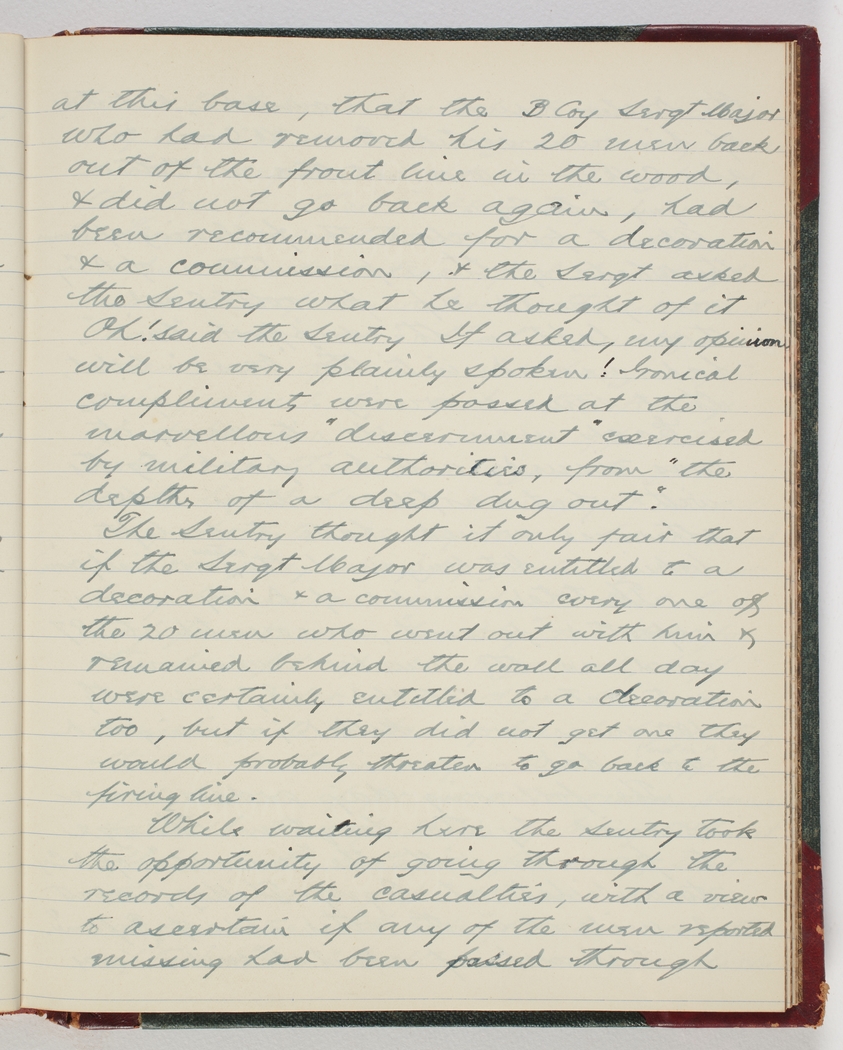 at this base, that the B Coy Sergt Major
who had removed his 20 men back
out of the front line in the wood,
& did not go back again, had
been recommended for a decoration
& a commission, & the Sergt asked
the Sentry what he thought of it
Oh! said the Sentry If asked, my opinion
will be very plainly spoken! Ironical
compliments were passed at the
marvellous "discernment" exercised
by military authorities, from "the
depths of a deep dug out".
The Sentry thought it only fair that
if the Sergt Major was entitled to a
decoration & a commission every one of
the 20 men who went out with him &
remained behind the wall all day
were certainly entitled to a decoration
too, but if they did not get one they
would probably threaten to go back to the
firing line.
While waiting here the Sentry took
the opportunity of going through the
records of the casualties, with a view
to ascertain if any of the men reported
missing had been passed through